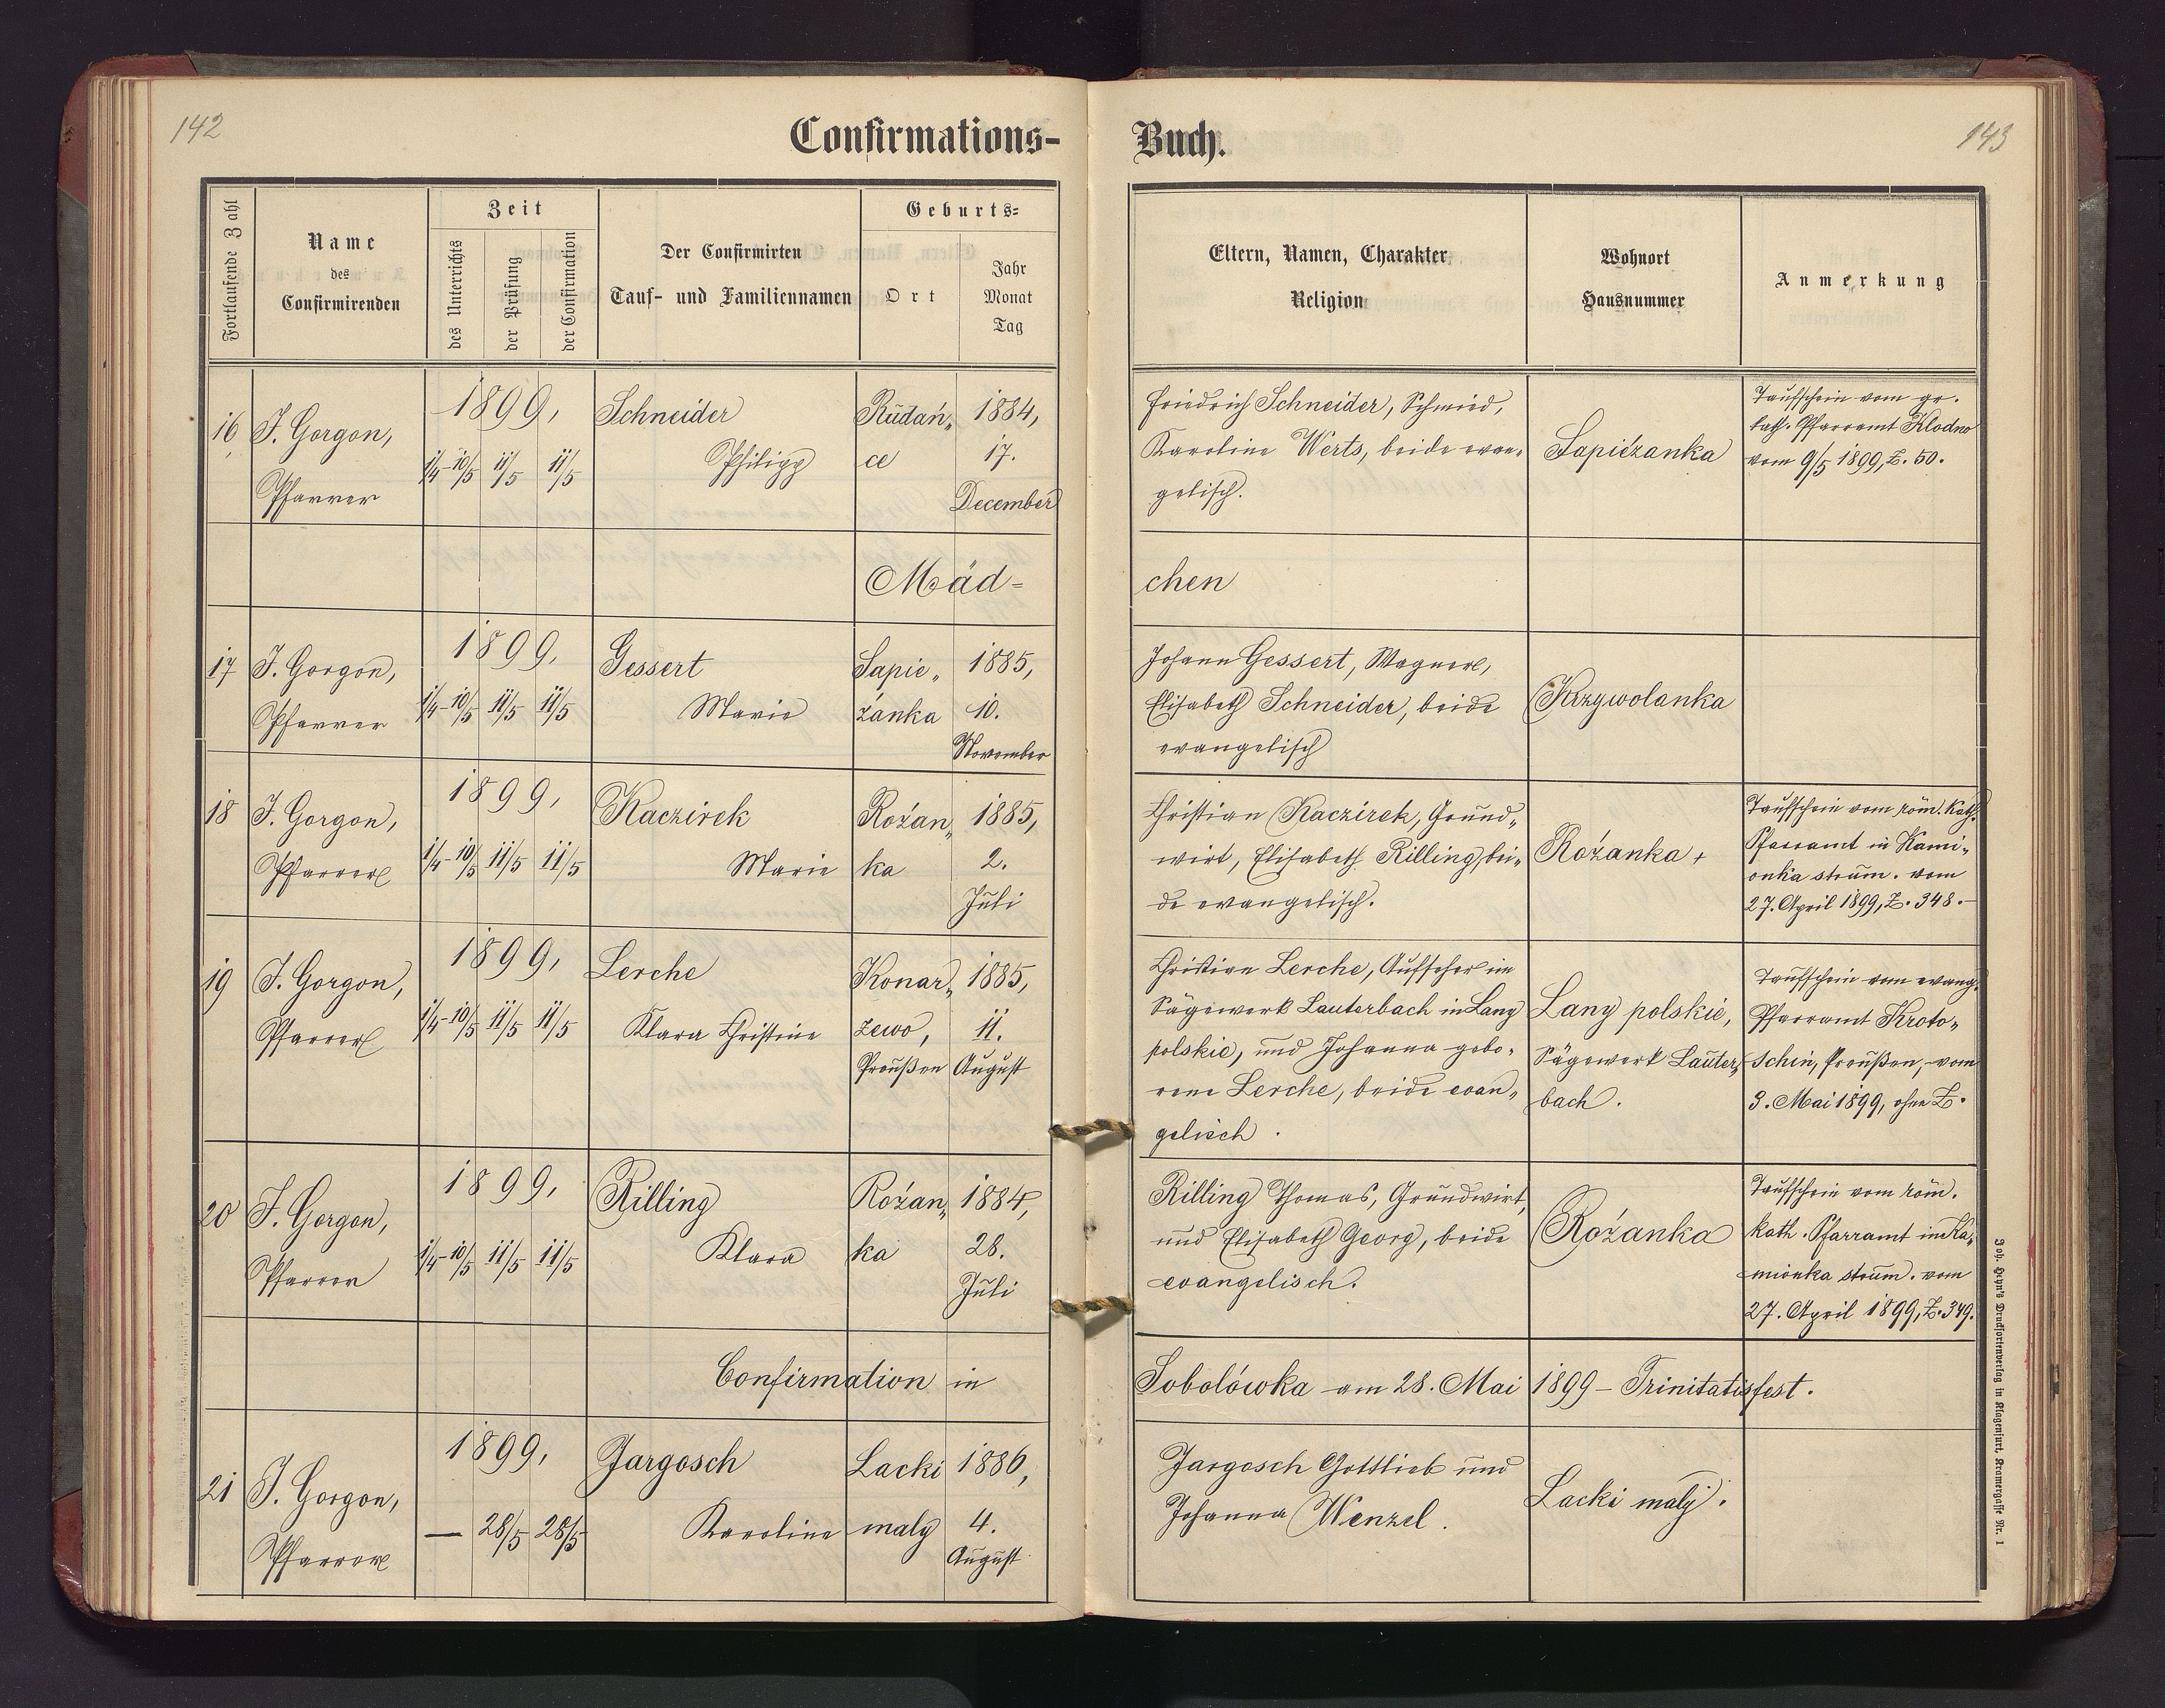 142
Confirmations-
Buch.
143
Fortlaufende Zahl
Name
des
Confirmirenden
Zeit
des Unterrichts
der Prüfung
der Confirmation
Der Confirmirten
Tauf- und Familiennamen
Geburts-
Ort
Jahr
Monat
Tag
Eltern, Namen, Charakter
Religion
Wohnort
Hausnummer
Anmerkung
16
J. Gorgon,
Pfarrer
1899,
1/4-10/5 11/5 11/5
Schneider
Philipp
Rudań„
ce
1884,
17.
December
Friedrich Schneider, Schmied,
Karoline Werts, beide evan-
gelisch.
Sapiézanka
Taufschein vom gr.
kath. Pfarramt Klodno
vom 9/5 1899, Z. 50.
Mäd-
chen
17
J. Gorgon,
Pfarrer
1899,
1/4-10/5 11/5 11/5
Gessert
Marie
Sapie„
żanka
1885,
10.
November
Johann Gessert, Wagner,
Elisabeth Schneider, beide
evangelisch
Krzywolanka
18
J. Gorgon,
Pfarrer
1899,
1/4-10/5 11/5 11/5
Kaczirek
Marie
Rożan„
ka
1885,
2.
Juli
Christian Kaczirek, Grund„
wirt, Elisabeth Rilling, bei-
de evangelisch.
Rożanka
Taufschein vom röm. kath.
Pfarramt in Kami-
onka strum. vom
27. April 1899, Z. 348.—
19
J. Gorgon,
Pfarrer
1899,
1/4-10/5 11/5 11/5
Lerche
Klara Christine
Konar„
zewo,
Preußen
1885,
11.
August
Christian Lerche, Aufseher im
Sägewerk Lauterbach in Lany
polskie, und Johanna gebo-
rene Lerche, beide evan„
gelisch.
Lany polskie,
Sägewerk Lauter„
bach.
Taufschein vom evang.
Pfarramt Kroto-
schin, Preußen, vom
3. Mai 1899, ohne Z.
20
J. Gorgon,
Pfarrer
1899,
1/4-10/5 11/5 11/5
Rilling
Klara
Rożan„
ka
1884,
28.
Juli
Rilling Thomas, Grundwirt,
und Elisabeth Georg, beide
evangelisch.
Rożanka
Taufschein vom röm.
kath. Pfarramt in Ka„
mionka strum. vom
27. April 1899, Z. 349.
Confirmation in
Sobolówka am 28. Mai 1899 – Trinitatisfest.
21
J. Gorgon,
Pfarrer
1899,
— 28/5 28/5
Jargosch
Karoline
Lacki
maly
1886,
4.
August
Jargosch Gottlieb und
Johanna Wenzel.
Lacki maly.
Joh. Heyn's Drucksortenverlag in Klagenfurt, Kramergasse Nr. 1